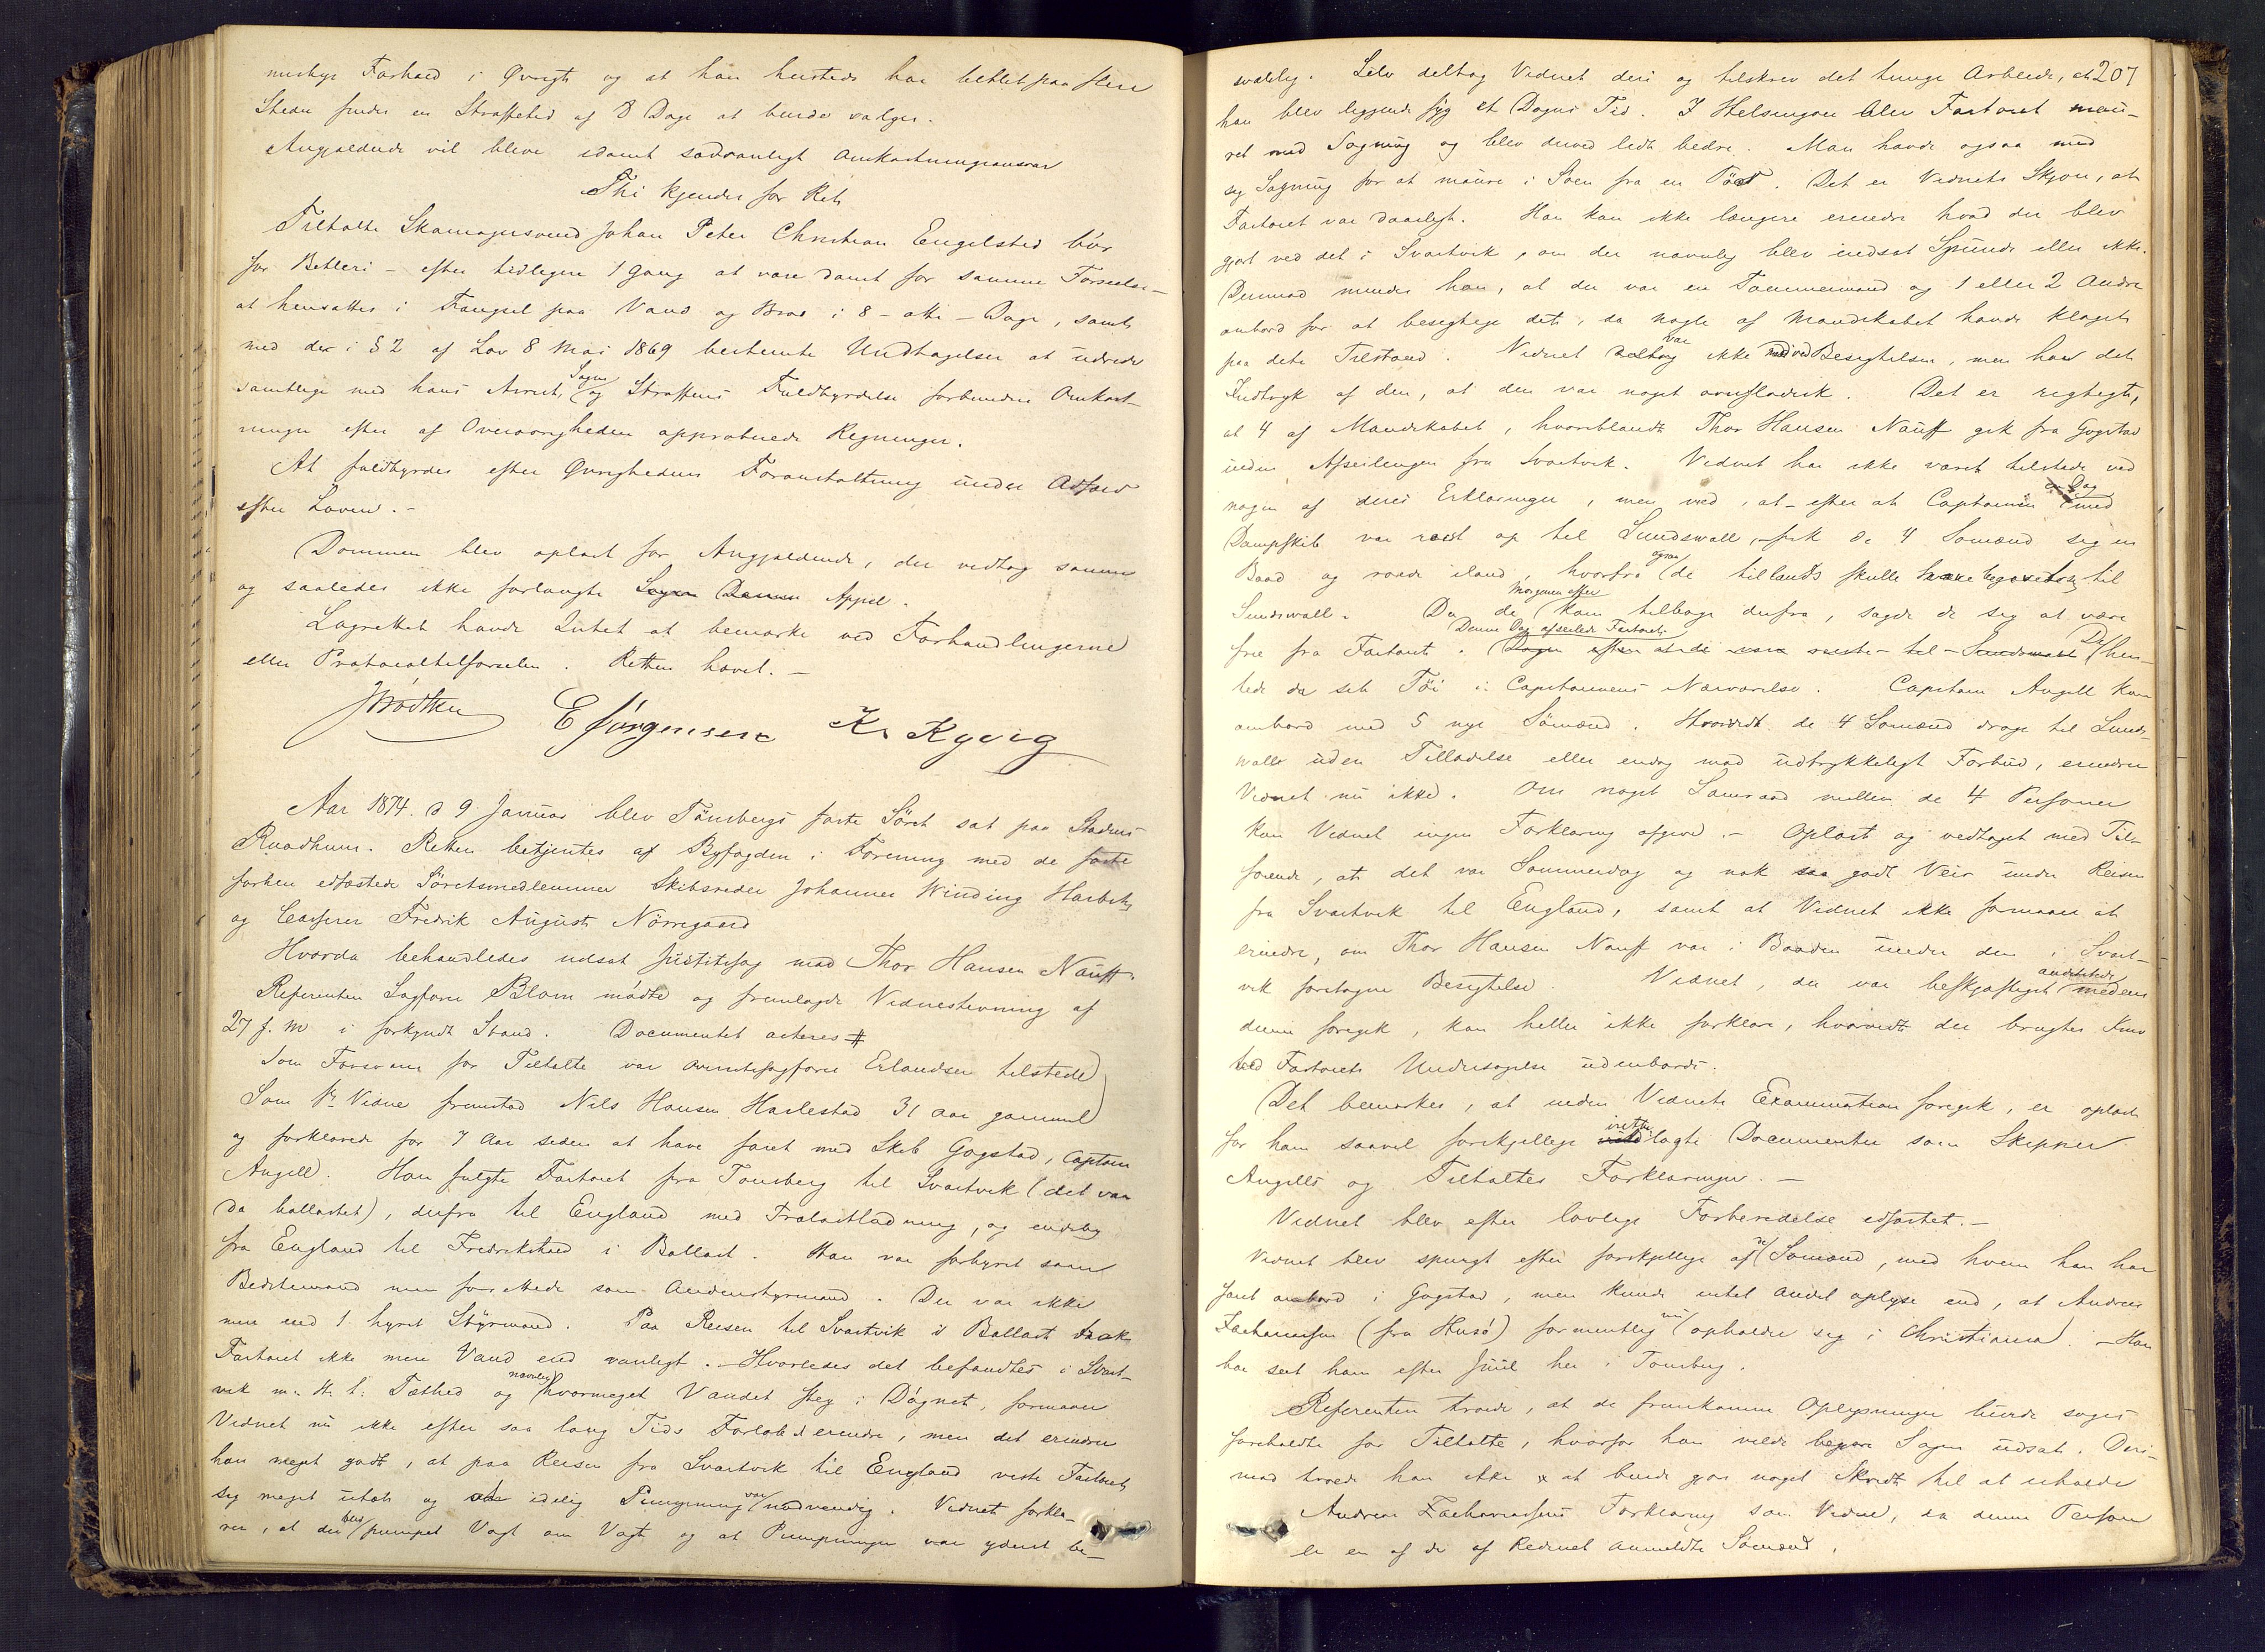 Forhold i Øvrigt og at han hersteds har betlet paa flere
Steder findes en Straffetid af 8 Dage at burde vælges.
Angjældende vil blive idømt sædvanligt Omkostningsansvar
Thi kjendes for Ret:
Tiltalte Skomagersvend Johan Peter Christian Engelsted bør
for Betleri - efter tidligere 1 Gang at være dømt for samme Forseelse -
at hensættes i Fængsel paa Vand og Brød i 8 - otte - Dage, samt
med de i § 2 af Lov 8 Mai 1869 bestemte Undtagelser at udrede
samtlige med hans Arrest, Sagen og Straffens Fuldbyrdelse forbundne Omkost-
ninger efter af Overøvrigheden approberede Regninger.
At fuldbyrdes efter Øvrighedens Foranstaltning under Adfærd
efter Loven. -
Dommen blev oplæst for Angjældende, der vedtog samme
og saaledes ikke forlangte Appel.
Lagrettet havde Intet at bemærke ved Forhandlingerne
eller Protocoltilførselen. Retten hævet. -
JBødtker EJørgensen K. Kyvig
Aar 1874. d 9 Januar blev Tönsbergs faste Söret sat paa Stadens
Raadhuus. Retten betjentes af Byfogden i Forening med de faste
forhen edfæstede Söretsmedlemmer Skibsreder Johannes Winding Harbitz
og Casserer Fredrik August Nörregaard
Hvorda behandledes udsat Justitssag mod Thor Hansen Nauff.
Referenten Sagfører Blom mödte og fremlagde Vidnestevning af
27 f. M i forkyndt Stand. Documentet acteres #
Som Forsvarer for Tiltalte var Overretssagfører Erlandsen tilstede
Som 1ste Vidne fremstod Nils Hansen Harlestad 31 Aar gammel
og forklarede for 7 Aar siden at have faret med Skib Gogstad, Captain
Angell. Han fulgte Fartøiet fra Tönsberg til Svartvik (det var
da ballastet), derfra til England med Trælastladning, og endelig
fra England til Fredrikstad i Ballast. Han var forhyret som
Bedstemand men forrettede som Andenstyrmand. Der var ikke
mere end 1 hyret Styrmand. Paa Reisen til Svartvik i Ballast trak
Fartøiet ikke mere Vand end vanligt. - Hvorledes det befandtes i Svart-
vik m. H. t. Tæthed og navnlig hvormeget Vandet steg i Dögnet, formaaer
Vidnet nu ikke efter saa lang Tids Forløb at erindre, men det erindrer
han meget godt, at paa Reisen fra Svartvik til England viste Fartøiet
sig meget utæt og idelig Pumpning var nødvendig. Vidnet forkla-
rer, at der blev pumpet Vagt om Vagt og at Pumpningen var yderst be-
207
sværlig. Selv deltog Vidnet deri og tilskrev det tunge Arbeide, at
han blev liggende syg et Døgns Tid. I Helsingøer blev Fartøiet
med Sagmug og blev derved lidt bedre. Man havde ogsaa med
sig Sagmug for at i Søen fra en Det er Vidnets Skjøn, at
Fartøiet var daarligt. Han kan ikke længere erindre hvad der blev
gjort ved det i Svartvik, om der navnlig blev indsat Spunds eller ikke.
Derimod mindes han, at der var en Tømmermand og 1 eller 2 Andre
ombord for at besigtige det, da nogle af Mandskabet havde klaget
paa dets Tilstand. Vidnet var ikke med ved Besigtelsen, men har det
Indtryk af den, at den var noget overfladisk. Det er rigtigt,
at 4 af Mandskabet, hvoriblandt Thor Hansen Nauff gik fra Gogstad
inden Afseilingen fra Svartvik. Vidnet har ikke været tilstede ved
nogen af deres Erklæringer, men ved, at - efter at Captainen en Dag med
Dampskib var reist op til Sundswall, fik de 4 Sømænd sig en
Baad og roede iland, hvorfra ogsaa de tillands skulle begivet sig til
Sundswall. Da de Morgenen efter kom tilbage derfra, sagde de sig at være
frie fra Fartøiet. Denne Dag afseilede Fartøiet. Dagen efter at de vare reiste til Sundswall De hen-
tede da sit Töi i Capitainens Nærværelse. Captain Angell kom
ombord med 5 nye Sömænd. Hvorvidt de 4 Sømænd drog til Sunds-
wall uden Tilladelse eller endog mod udtrykkeligt Forbud, erindrer
Vidnet nu ikke. Om noget Samraad mellem de 4 Personer
kan Vidnet ingen Forklaring afgive. - Oplæst og vedtaget med Til-
føiende, at det var Sommerdag og nok saa godt Veir under Reisen
fra Svartvik til England, samt at Vidnet ikke formaaer at
erindre, om Thor Hansen Nauff var i Baaden under den i Svart-
vik foretagne Besigtelse. Vidnet, der var beskjæftiget andetsteds medens
denne foregik, kan heller ikke forklare, hvorvidt der brugtes Kniv
ved Fartøiets Undersøgelse udenbords.
Det bemærkes, at inden Vidnets Examination foregik, er oplæst
for ham saavel forskjellige irettelagte Documenter som Skipper
Angells og Tiltaltes Forklaringer. -
Vidnet blev efter lovlige Forberedelse edfæstet. -
Vidnet blev spurgt efter forskjellige af de Sømænd, med hvem han har
faret ombord i Gogstad, men kunde intet andet oplyse end, at Andreas
Zachariassen (fra Husö) formentlig nu opholder sig i Christiania. - Han
har seet ham efter Juul her i Tönsberg.
Referenten troede, at de fremkomne Oplysninger burde søges
foreholdte for Tiltalte, hvorfor han vilde begjære Sagen udsat. Deri-
mod troede han ikke at burde gøre noget Skridt til at erholde
Andreas Zachariassens Forklaring som Vidne, da denne Person
er en af de af Rederiet anmeldte Sömænd.